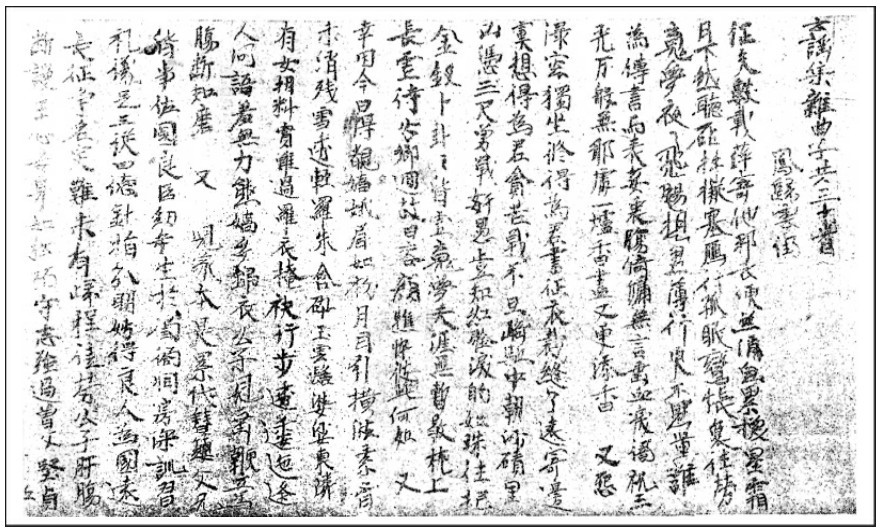 云謠集雜曲子共三十首
鳳歸雲
征夫數載萍寄他邦去便無消息累換星霜
月下愁聽砧杵擬塞鴈行孤眠鸞帳裏往勞
魂夢夜〻飛颺想君薄行更不思量誰
為傳書與表妾衷腸倚牖無言垂血淚闇祝三
光万般無那處一爐香盡又更添香 又怨
淥窓獨坐修得為君書征衣裁縫了遠寄邊
塞想得為君貪苦戰不憚崎嶇中朝沙磧里
只憑三尺勇戰奸愚豈知紅臉淚的如珠往把
金釵卜卦〻皆虛魂夢天涯無暫歇枕上
長虛待公卿回故日容顏憔悴彼此何如 又
幸因今日得覩嬌娥眉如初月目引橫波素胷
未消殘雪透輕羅朱含碎玉雲髻婆娑東隣
有女相料實難過羅衣掩袂行步逶迤逢
人問語羞無力態嬌多錦衣公子見垂鞭立馬
腸斷知麼 又 兒家本是累代簪纓父兄
皆事佐國良臣幼年生於閨閤洞房深訓習
礼儀足三從四德針指分明娉得良人為國遠
長征爭名定難未有歸程徒勞公子肝腸
斷謾生心妾身如松栢守志強過曾女堅貞